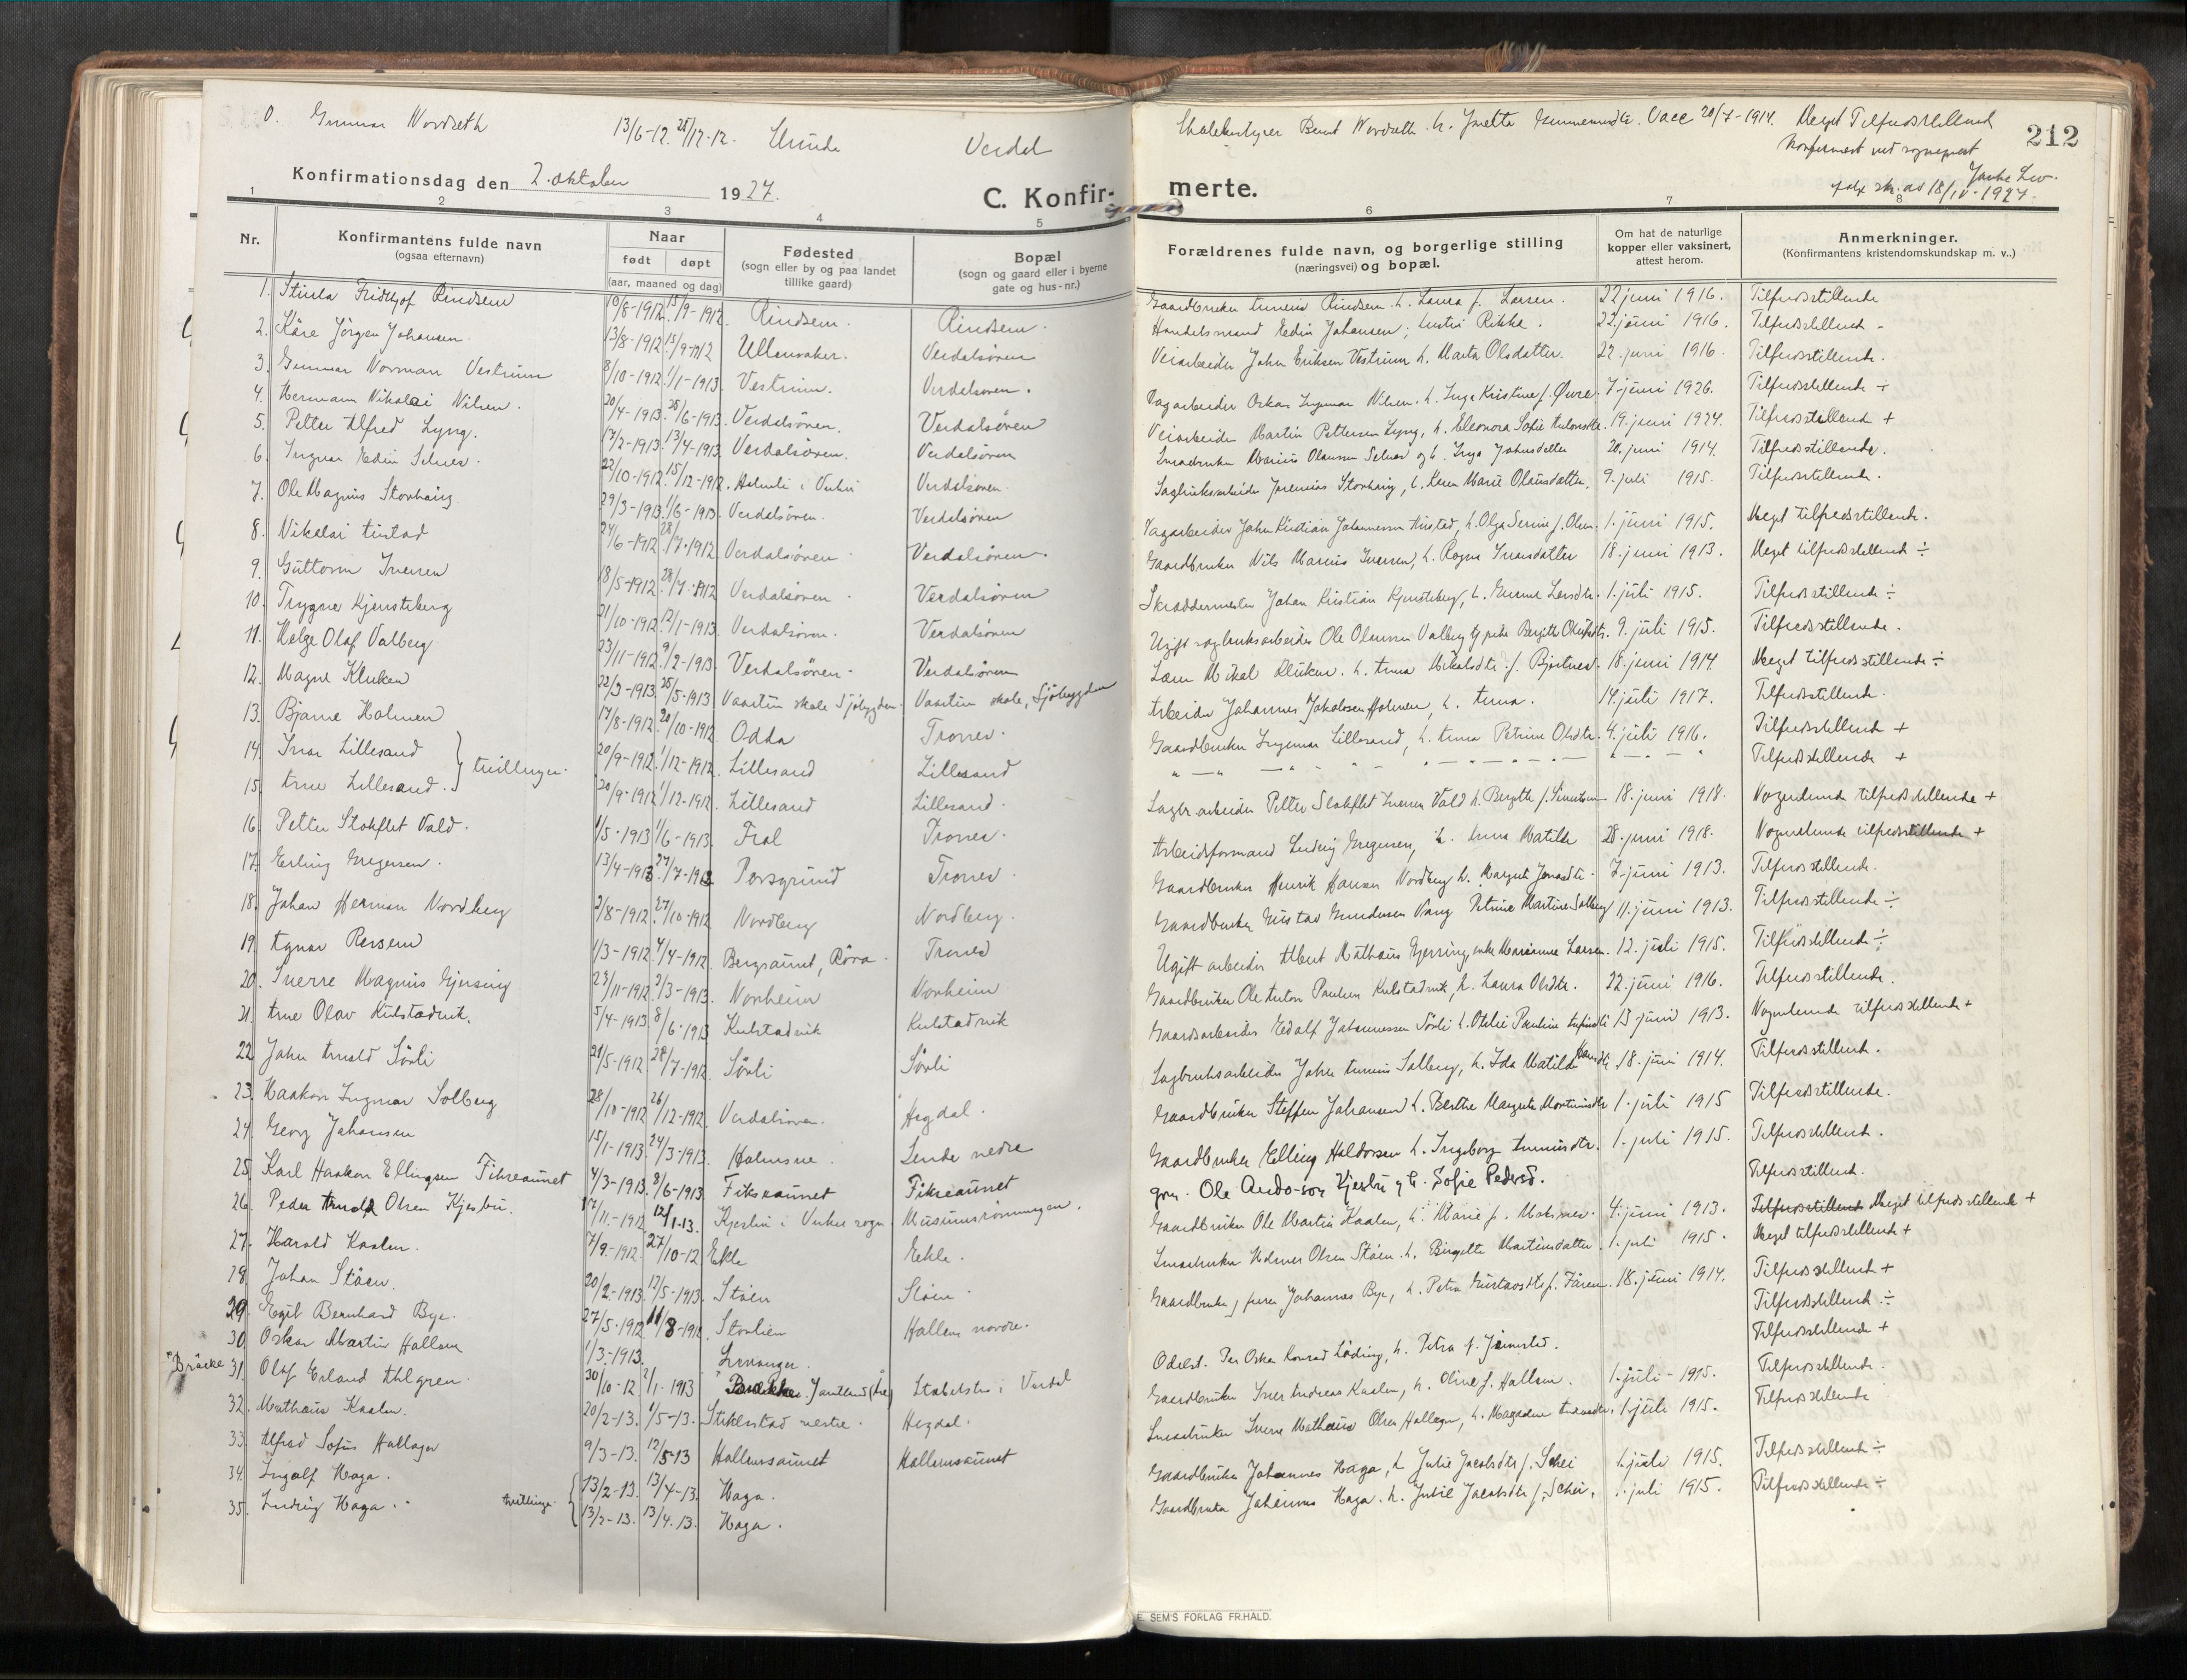 0. Gunnar Nordseth 13/6-12. 25/12-12. Verdal
212
Bernt Nordseth h. Vacc 20/7-1914. Meget Tilfredsstillend
Konfirmert ved sogneprest
18/IV-1927.
Konfirmationsdag den 2. oktober 1927.
C. Konfir- merte.
1 2 3 4 5 6 7 8
Nr. Konfirmantens fulde navn (ogsaa efternavn) Naar født døpt (aar, maaned og dag) Fødested (sogn eller by og paa landet tillike gaard) Bopæl (sogn og gaard eller i byerne gate og hus-nr.) Forældrenes fulde navn, og borgerlige stilling (næringsvei) og bopæl. Om hat de naturlige kopper eller vaksinert, attest herom. Anmerkninger. (Konfirmantens kristendomskundskap m. v..)
1. Sturla Fridtjof Rindsem 10/8-1912. 15/9-1912 Rindsem. Rindsem. Gaardbruker Rindsem h. Laura f. Larsen. 22 juni 1916. Tilfredsstillende
2. Kåre Jörgen Johansen 13/8-1912 15/9-1912 Ullenaker. Verdalsören Handelsmand Edin Johansen; 22. juni 1916. Tilfredsstillend
3. Gunnar Norman Vestrum 8/10-1912. 1/1-1913. Vestrum. Verdalsören. Veiarbeider John Eriksen Vestrum h. Marta Olsdatter. 22. juni 1916. Tilfredsstillende.
4. Hermann Nikolai Nilsen. 20/4-1913. 25/6-1913. Verdalsören. Verdalsören Dagarbeider Oskar Ingemar Nilsen. h. Inga Kristine f. Øvre. 7. juni 1926. Tilfredsstillende ÷
5. Petter Alfred Lyng. 17/2-1913. 13/4-1913. Verdalsören. Verdalsören Veiarbeider Martin Pettersen Lyng, h. Eleonora Sofie 19. juni 1924. Tilfredsstillend +
6. Ingvar Edin Selnes. 22/10-1912. 15/12-1912. Verdalsören. Marius Olausen Selnes og h. Inga Johnsdatter 20. juni 1914. Tilfredsstillende.
7. Ole Magnus Storhaug. 29/3-1913. 1/6-1913. Verdalsören. Verdalsören Sagbruksarbeider Jeremias Storhaug, h. Karen Marie Olausdatter. 9. juli 1915. Tilfredsstillende.
8. Nikolai 24/6-1912. 28/7-1912 Verdalsören Verdalsören. Dagarbeider John Kristian Johannessen h. Olga f. Olsen. 1. juni 1915. Meget tilfredsstillende.
9. Guttorm Iversen 18/5-1912. 28/7-1912 Verdalsören Verdalsören Gaardbruker Nils Marius Iversen, h. Ragna Ivarsdatter 18. juni 1913. Meget tilfredsstillend ÷
10. Trygve Kjensteberg 21/10-1912. 12/1-1913. Verdalsören. Verdalsören Skræddermester Johan Kristian h. 1. juli 1915. Tilfredsstillend ÷
11. Helge Olaf Valberg 23/11-1912. 9/2-1913. Verdalsören. Verdalsören Ugift sagbruksarbeider Ole Olausen Valberg 9. juli 1915. Tilfredsstillende.
12. Magne Kluken 22/3-1913. 25/5-1913 Vaartun skole Sjöbygden. Vaartun skole, Sjöbygden Lærer Mikal Kluken. h. Anna f. Bjartnes. 18. juni 1914 Meget tilfredsstillende ÷
13. Bjarne Holmen 17/8-1912. 20/10-1912 Odda Trones. Arbeider Johannes Jakobsen Holmen, h. Anna. 14. juli 1917. Tilfredsstillende.
14. Ivar Lillesand } tvillinger. 20/9-1912. 1/12-1912. Lillesand Lillesand Gaardbruker Ingemar Lillesand, h. Anna Petrine Olsdtr. 4. juli 1916. Tilfredsstillend +
15. Arne Lillesand. 20/9-1912. 1/12-1912. Lillesand Lillesand. Tilfredsstillende +
16. Petter Stokflet Vald. 1/5-1913. 1/6-1913. Frol Trones. Petter Stokflet Iversen Vald h. Bergitte 18. juni 1918. Nogenlunde tilfredsstillende +
17. Erling Gregersen. 13/4-1913. 27/7-1913 Porsgrund Trones. Arbeidsformand Ludvig Gregersen, h. Anna Matilde 28. juni 1918. Nogenlunde tilfredsstillende +
18. Johan Herman Nordberg 2/8-1912. 27/10-1912 Nordberg Nordberg. Gaardbruker Henrik Hansen Nordberg h. Margrete 7. juni 1913. Tilfredsstillende.
19. Agnar Persen 1/3-1912. 4/4-1912. Bergsaunet, Röra Trones Gaardbruker Gustav Gundersen Vang Petrine Martine Solberg 11. juni 1913. Tilfredsstillende ÷
20. Sverre Magnus Gjersing 23/11-1912. 2/3-1913. Norheim Norheim Ugift arbeider Albert Mathæus Gjersing enke Marianne Larsen. 12. juli 1915. Tilfredsstillende ÷
21. Arne Olav Kulstadvik. 5/4-1913. 8/6-1913 Kulstadvik Kulstadvik Gaardbruker Ole Anton Paulsen Kulstadvik, h. Laura Olsdtr. 22. juni 1916. Tilfredsstillende.
22. John Arnold Sörli 21/5-1912. 28/7-1912. Sörli Sörli Gaardsarbeider Edolf Johannessen Sörli h. Otilie Pauline 13 juni 1913. Nogenlunde tilfredsstillende +
23. Haakon Ingmar Solberg 28/10-1912. 26/12-1912. Verdalsören. Hegdal. Sagbruksarbeider Johan Solberg, h. Ida Matilde 18. juni 1914. Tilfredsstillende.
24. Georg Johansen 15/1-1913. 24/3-1913. Holmsve. Lende nedre Gaardbruker Steffen Johansen h. Berthe Margrete Martinsdtr 1. juli 1915 Tilfredsstillende.
25. Karl Haakon Ellingsen Fikseaunet 4/3-1913. 8/6-1913. Fikseaunet Fikseaunet Gaardbruker Elling Haldorsen h. Ingeborg 1. juli 1915. Tilfredsstillend.
26. Peder Arnold Olsen Kjesbu. 17/11-1912 12/1-13. Kjesbu i Verdal. Ole Kjesbu og h. Sofie Pedersd. Tilfredsstillend.
27. Harald Kaalen. 7/9-1912. 27/10-12 Ekle Ekle. Gaardbruker Ole Martin Kaalen, h. Marie f. 4. juni 1913. Tilfredsstillend Meget tilfredsstillende +
28. Johan Stöen. 20/2-1913. 12/5-1913. Stöen Stöen. Olsen Stöen. h. Birgitte Martinsdatter. 1. juli 1915. Meget tilfredsstillende +
29. Egil Bernhard Bye. 27/5-1912. 11/8-1912. Stoelien Hallem nordre. Gaardbruker Johannes Bye, h. Petra f. Færen. 18. juni 1914. Tilfredsstillend +
30. Oskar Martin Hallem 1/3-1913. Levanger. Tilfredsstillend ÷
* Bräcke 31. Olaf Erland Ahlgren. 30/10-12. 2/1-1913 Jämtland i Verdal Odelst. Per Oskar Konrad h. Petra f. Tilfredsstillende +
32. Mathæus Kaalen. 20/2-13. 1/5-13. Stiklestad vestre. Hegdal. Gaardbruker Iver Andreas Kaalen, h. Oline f. Hallem. 1. juli - 1915. Tilfredsstillende.
33. Alfred Sofus Hallager 9/3-13. 12/5-13 Hallemsaunet Hallemsaunet Sverre Mathæus Olsen Hallager, h. 1. juli 1915. Tilfredsstillende
34. Ingolf Haga. tvillinger { 13/2-13. 13/4-13. Haga. Gaardbruker Johannes Haga, h. Julie Jacobsdtr f. Schei 1. juli 1915. Tilfredsstillend ÷
35. Ludvig Haga. 13/2-13. 13/4.13. Haga. Gaardbruker Johannes Haga. h. Julie Jacobsdtr f. Schei. 1. juli 1915. Tilfredsstillende ÷
E. SEM'S FORLAG FR.HALD.